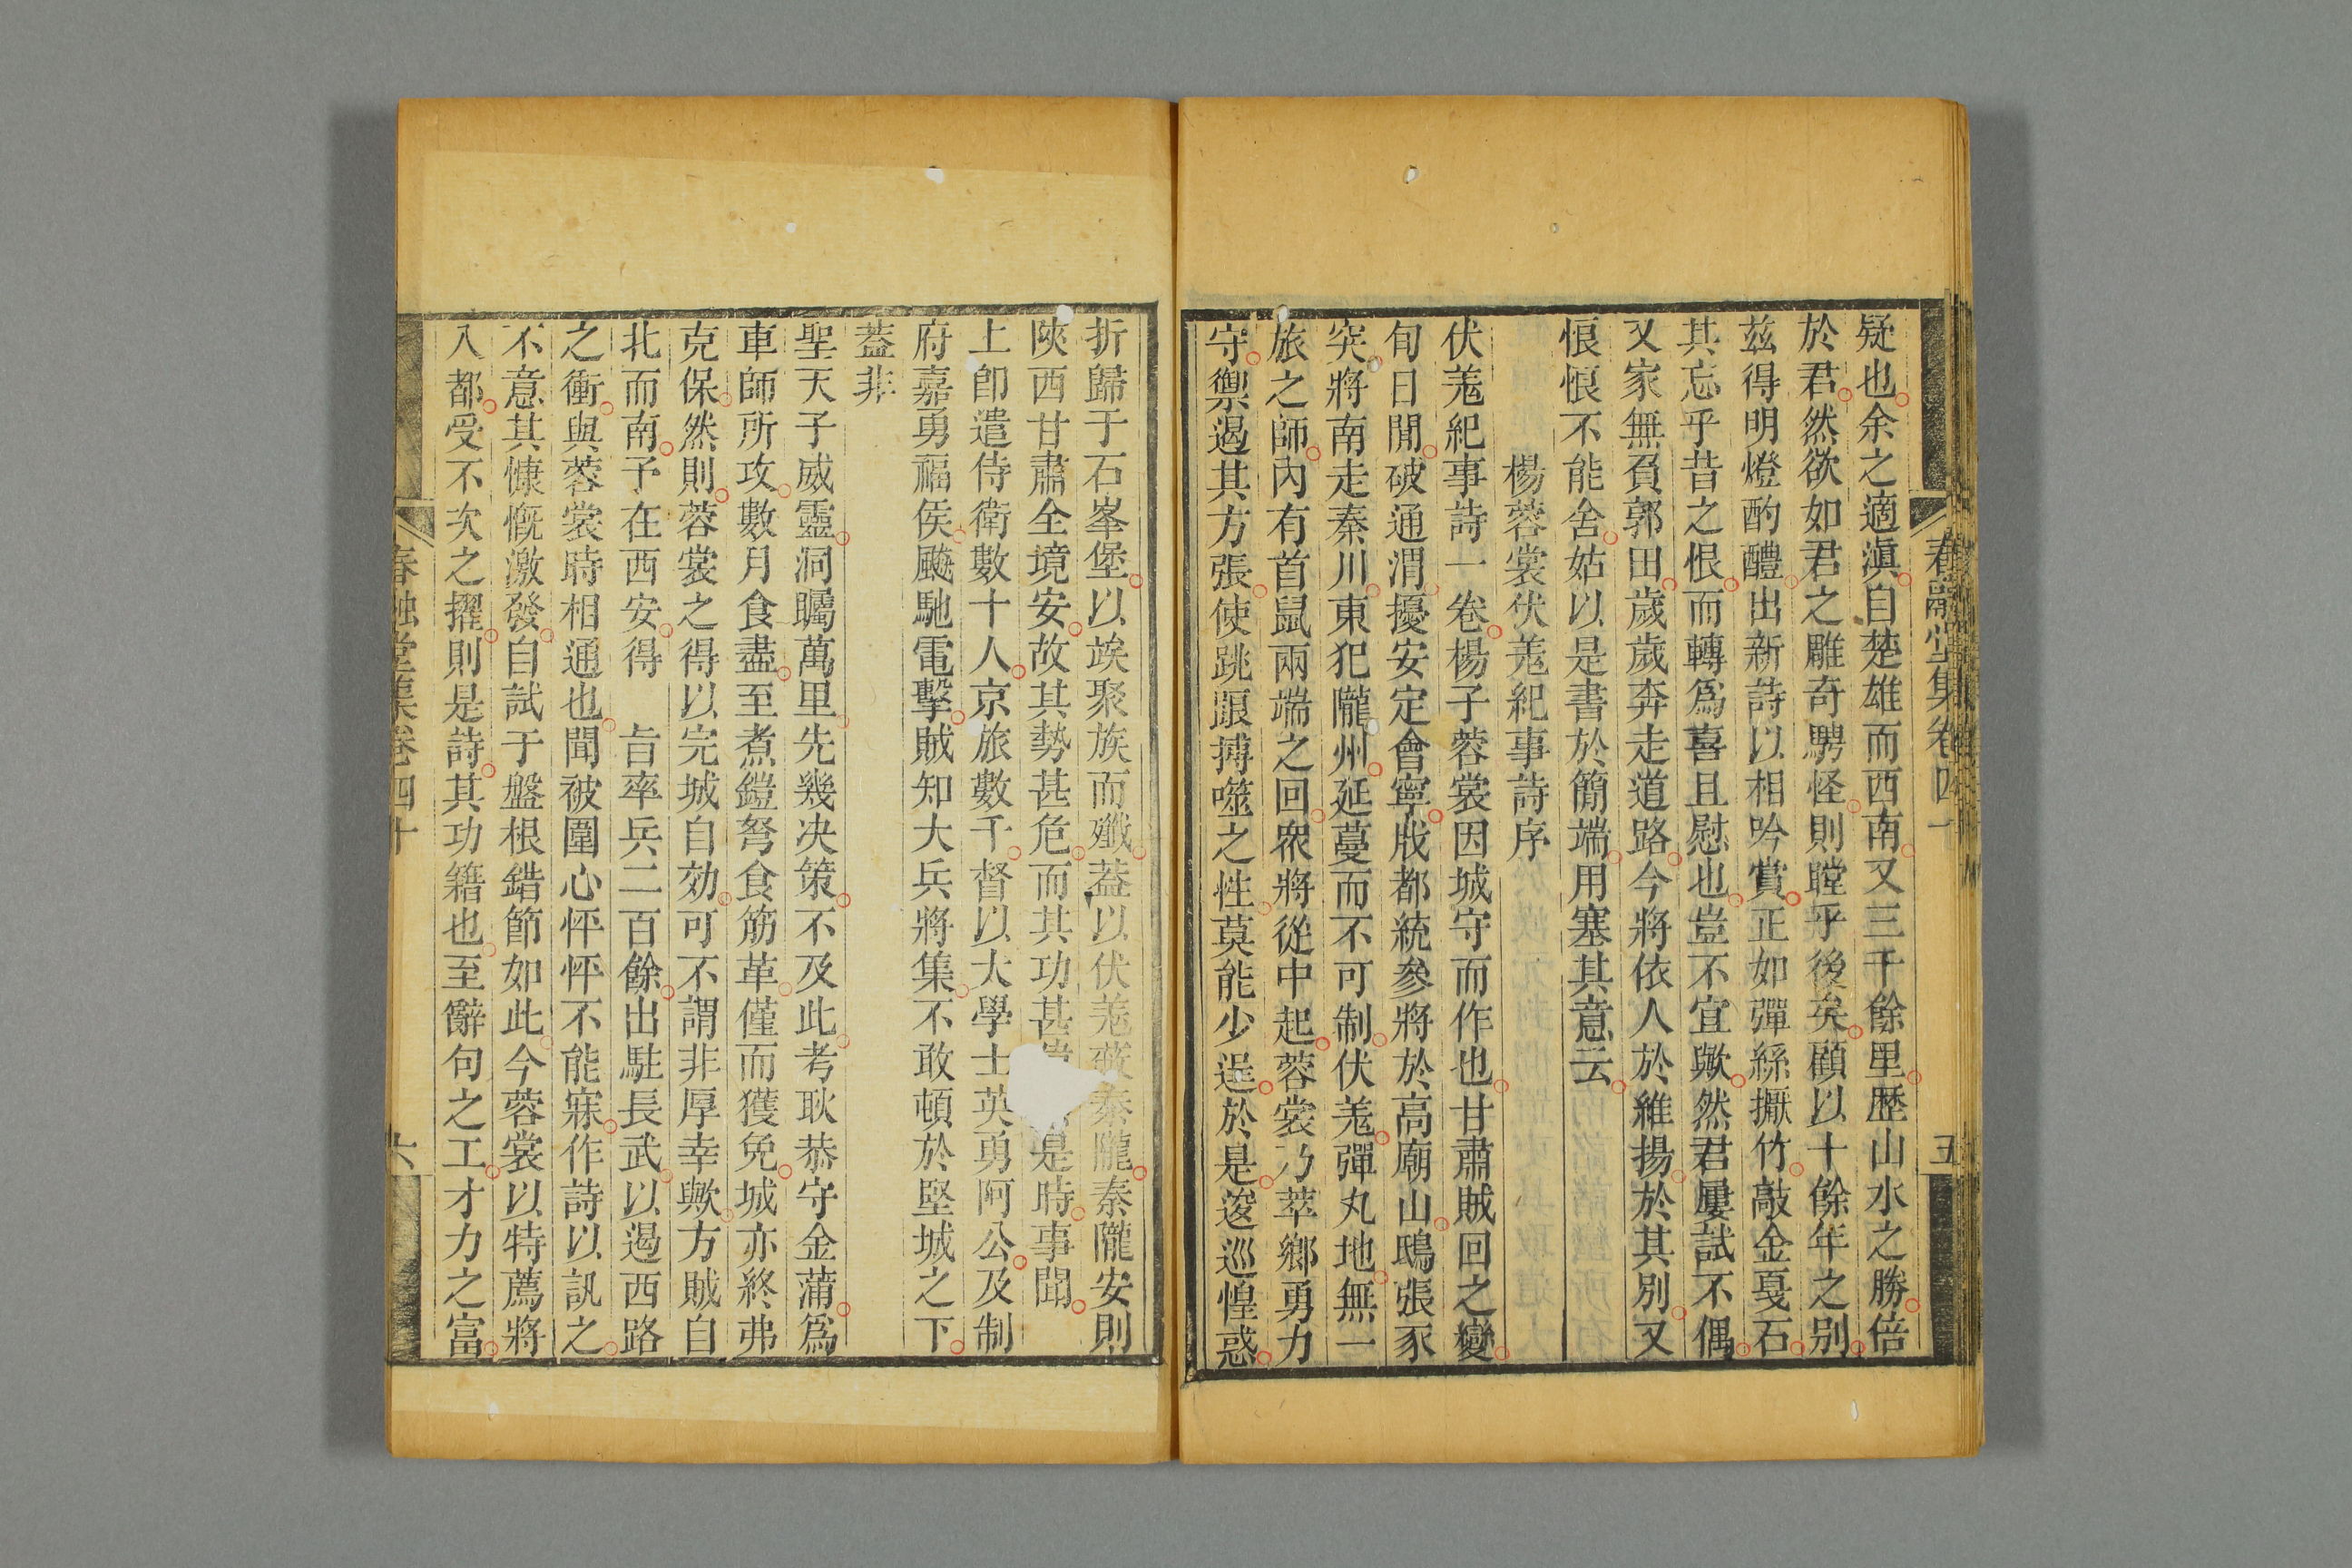 疑也余之適滇自楚雄而西南又三千餘里歷山水之勝倍
於君然欲如君之雕奇騁怪則瞠乎後矣顧以十餘年之別
玆得明燈酌醴出新詩以相吟賞正如彈絲擫竹敲金戛石
其忘乎昔之恨而轉爲喜且慰也豈不宜歟然君屢試不偶
又家無負郭田歲歲奔走道路今將依人於維揚於其別又
悢悢不能舍姑以是書於簡端用塞其意云
楊蓉裳伏羗紀事詩序
伏羗紀事詩一卷楊子蓉裳因城守而作也甘肅賊回之變
旬日閒破通渭擾安定會寧戕都統參將於高廟山鴟張豕
突將南走秦川東犯隴州延蔓而不可制伏羗彈丸地無一
旅之師內有首鼠兩端之回衆將從中起蓉裳乃萃鄉勇力
守禦遏其方張使跳踉搏噬之性莫能少逞於是逡巡惶惑
春融堂集卷四十
五
折歸于石峯堡以竢聚族而殲蓋以伏羗蔽秦隴秦隴安則
陝西甘肅全境安故其勢甚危而其功甚 是時事聞
上卽遣侍衛數十人京旅數千督以大學士英勇阿公及制
府嘉勇福侯飈馳電擊賊知大兵將集不敢頓於堅城之下
蓋非
聖天子威靈洞矚萬里先幾决策不及此考耿恭守金蒲爲
車師所攻數月食盡至煮鎧弩食筋革僅而獲免城亦終弗
克保然則蓉裳之得以完城自効可不謂非厚幸歟方賊自
北而南予在西安得 旨率兵二百餘出駐長武以遏西路
之衝與蓉裳時相通也聞被圍心怦怦不能寐作詩以訊之
不意其慷慨激發自試于盤根錯節如此今蓉裳以特薦將
入都受不次之擢則是詩其功籍也至辭句之工才力之富
春融堂集卷四十
六